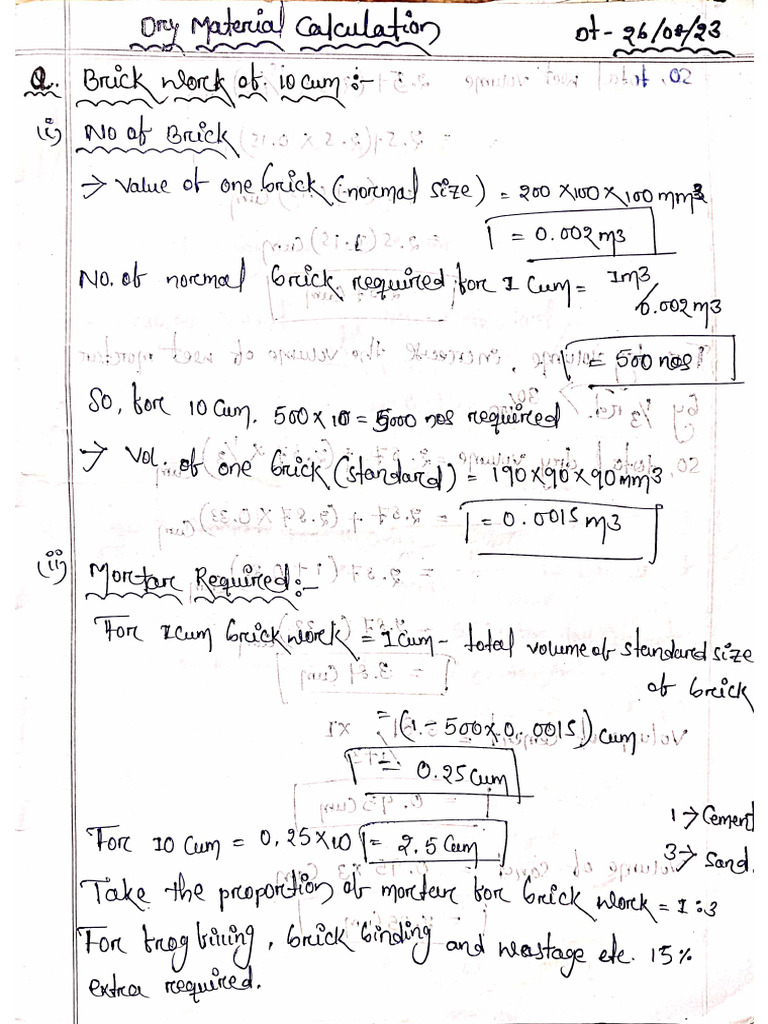 Dry Material Calculation Dt- 26/08/23
Q. Brick work of 10 cum :-
(i) No of Brick
→ Value of one brick (normal size) = 200 × 100 × 100 mm3
= 0.002 m3
No. of normal brick required for 1 Cum = 1m3
/0.002 m3
= 500 nos
So, for 10 Cum. 500 × 10 = 5000 nos required
→ Vol. of one brick (standard) = 190 × 90 × 90 mm3
= 0.0015 m3
(ii) Mortar Required :-
For 1 cum brick work = 1 Cum - total volume of standard size
of brick
= (1 - 500 × 0.0015) Cum
= 0.25 Cum
1 → Cement
For 10 Cum = 0.25 × 10 = 2.5 Cum
3 → Sand.
Take the proportion of mortar for brick work = 1:3
For frog filling, brick binding and wastage etc. 15%
extra required.